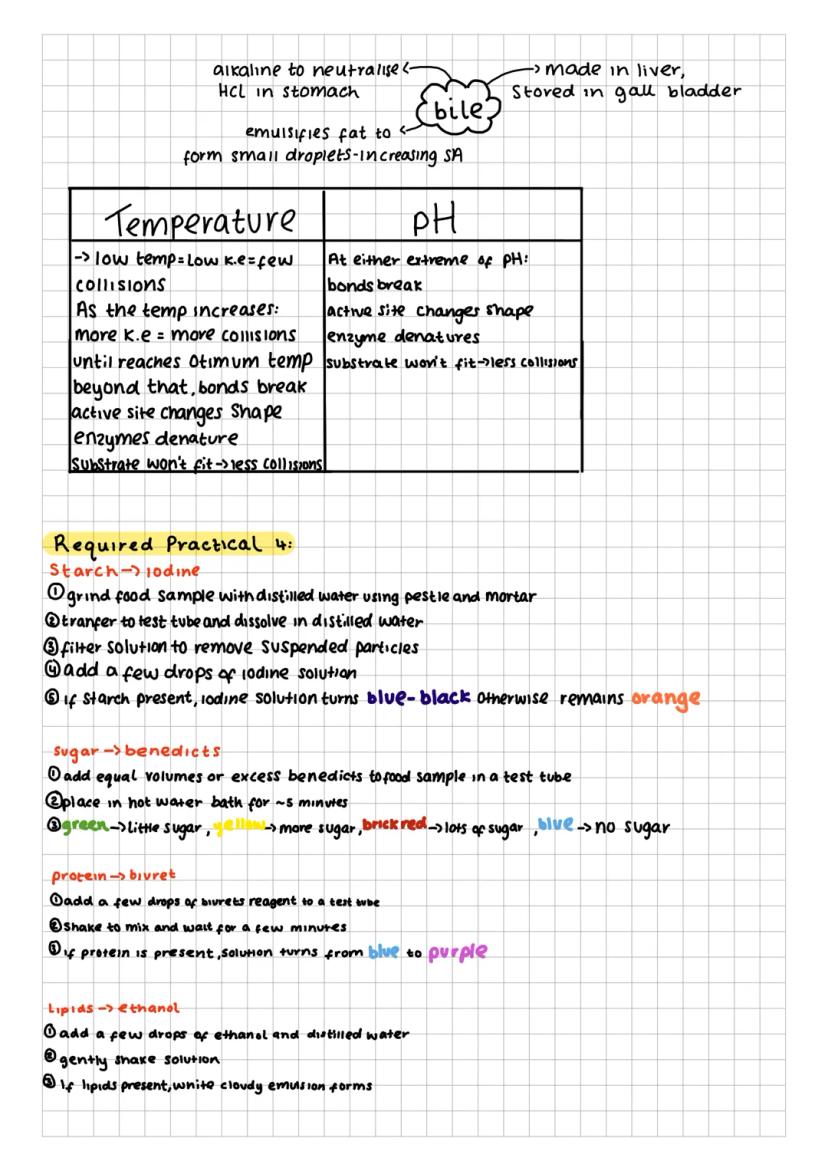 alkaline to neutralise
HCL in stomach
made in liver,
Stored in gall bladder
bile
emulsifies fat to
form small droplets-increasing SA
Temperature
-> low temp=Low K.e=few
collisions
As the temp increases:
more K.e = more collisions
until reaches Otimum temp
beyond that, bonds break
active site changes Shape
enzymes denature
Substrate won't fit->less collisions
pH
At either extreme of pH:
bonds break
active site changes shape
enzyme denatures
substrate won't fit->less collisions
Required Practical 4:
Starch-> iodine
①grind food sample with distilled water using pestle and mortar
②tranfer to test tube and dissolve in distilled water
③filter solution to remove suspended particles
④add a few drops of iodine solution
⑤if starch present, iodine solution turns blue-black otherwise remains orange
sugar->benedicts
①add equal volumes or excess benedicts to food sample in a test tube
②place in hot water bath for ~5 minutes
③green->little sugar, yellow->more sugar, brick red->lots of sugar, blue->no sugar
protein->biuret
①add a few drops of biurets reagent to a test tube
②shake to mix and wait for a few minutes
③if protein is present, solution turns from blue to purple
Lipids->ethanol
①add a few drops of ethanol and distilled water
②gently shake solution
③if lipids present, white cloudy emulsion forms